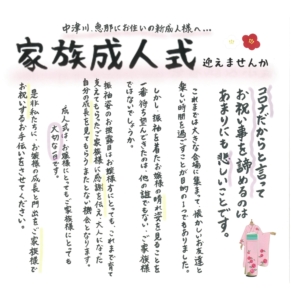 中津川、恵那にお住いの新成人様へ…
家族成人式 迎えませんか
コロナだからと言って
お祝い事を諦めるのは
あまりにも悲しいことです。
これまでは大きな会場に集まって、懐かしいお友達と
楽しい時間を過ごすことが目的の一つでもありました。
しかし、振袖を着たお嬢様の晴れ姿を見ることを
一番待ち望んできたのは、他の誰でもない、ご家族様
ではないでしょうか。
振袖姿のお披露目はお嬢様方にとっても、これまで育て
支えてもらったご家族様に感謝を伝え、大人になった
自分の成長を見てもらうまたとない機会となります。
成人式はお嬢様にとってもご家族様にとっても
大切な一日です。
是非私たちに、お嬢様の成長と門出をご家族様で
お祝いするお手伝いをさせてください。